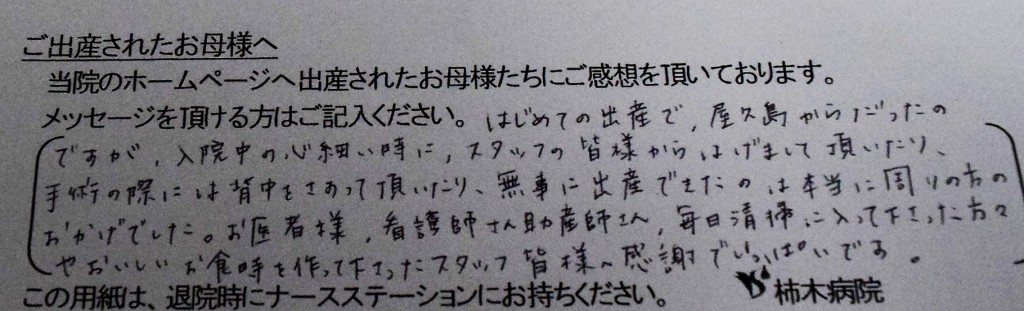 ご出産されたお母様へ
当院のホームページへ出産されたお母様たちにご感想を頂いております。
メッセージを頂ける方はご記入ください。はじめての出産で,屋久島からだったの
ですが,入院中の心細い時に,スタッフの皆様からはげまして頂いたり、
手術の際には背中をさすって頂いたり、無事に出産できたのは本当に周りの方の
おかげでした。お医者様,看護師さん助産師さん,毎日清掃に入って下さった方々
やおいしいお食時を作って下さったスタッフ皆様へ感謝でいっぱいです。
この用紙は、退院時にナースステーションにお持ちください。 柿木病院